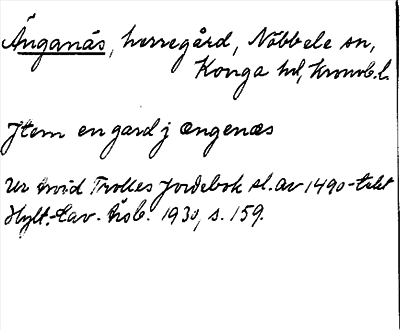 Änganäs, herregård, Nöbbele sn,
Konga hd, Kronob.l.
Jtem en gard j ængenæs
Ur Arvid Trolles Jordebok sl. av 1490-talet
Hylt.-Cav. Årsb. 1930, s. 159.